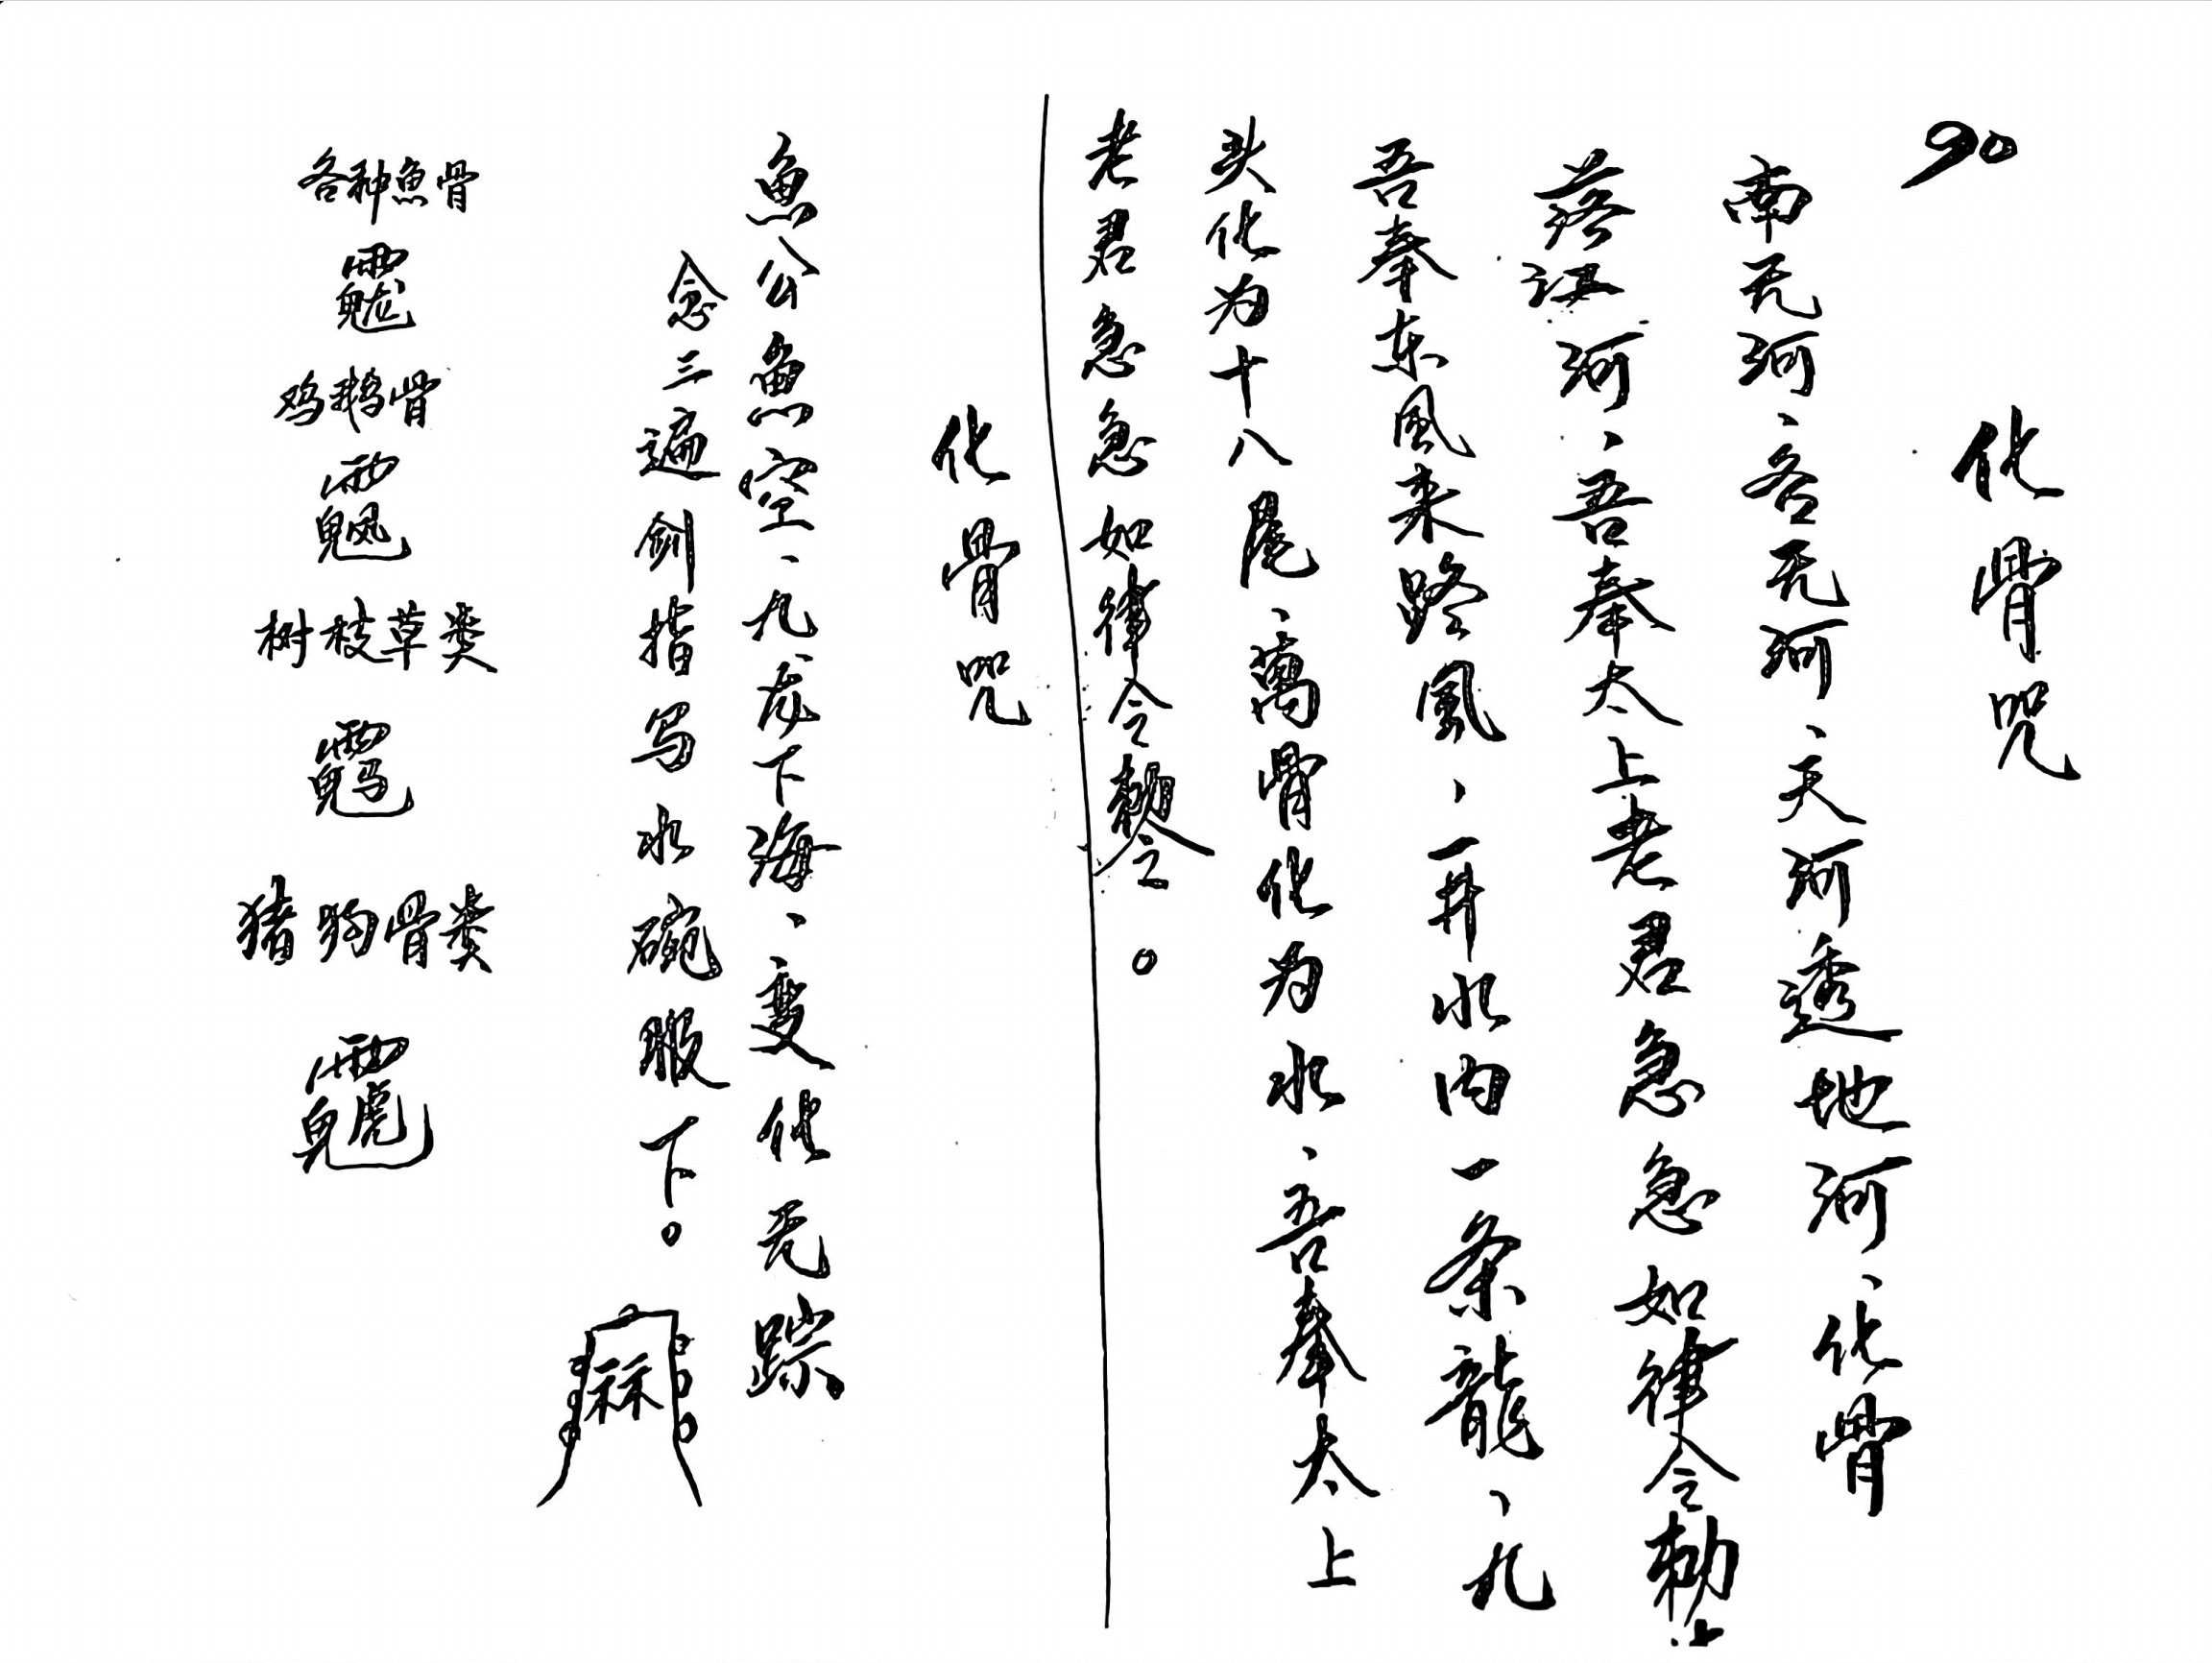 90
化骨咒
南无河、各无河、天河透地河、化骨
落江河、吾奉太上老君急急如律令勅
吾奉东風来路風、一井水内一条龍、九
头化为十八尾、萬骨化为水、吾奉太上
老君急急如律令。
化骨咒
魚公魚空、九龙下海、变化无踪
念三遍剑指写水碗服下。
各种魚骨
鸡鹅骨
树枝草类
猪狗骨类